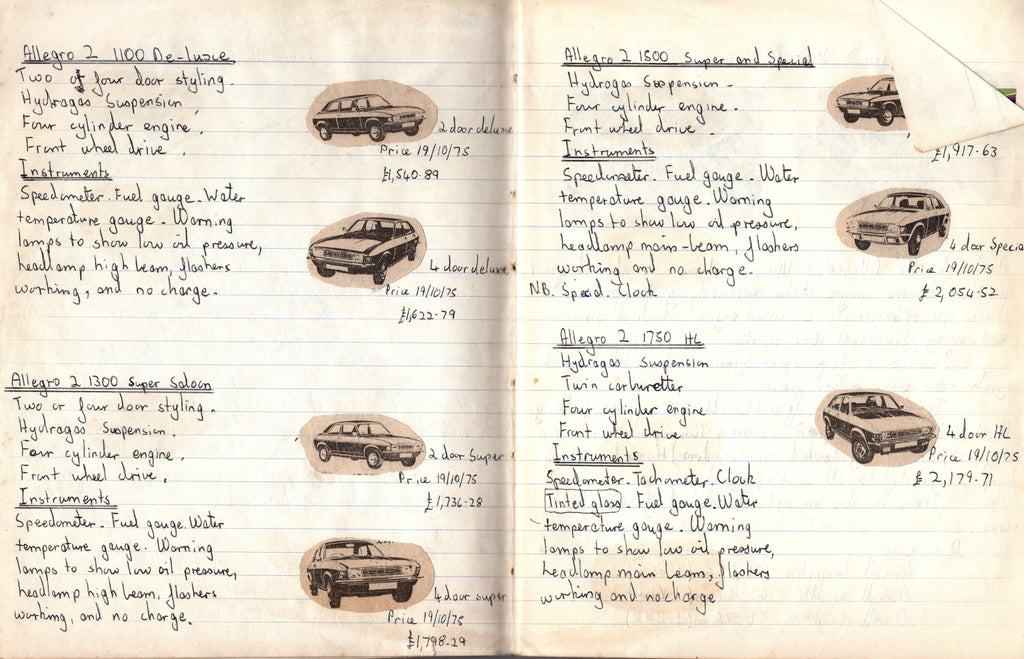 Allegro 2 1100 De-luxe
Two or four door styling.
Hydragas Suspension
Four cylinder engine.
Front wheel drive.
Instruments
Speedometer. Fuel gauge. Water
temperature gauge - Warning
lamps to show low oil pressure,
headlamp high beam, flashers
working, and no charge.
2 door deluxe
Price 19/10/75
£1,540-89
4 door deluxe
Price 19/10/75
£1,622-79
Allegro 2 1300 Super Saloon
Two or four door styling.
Hydragas Suspension.
Four cylinder engine.
Front wheel drive.
Instruments
Speedometer - Fuel gauge. Water
temperature gauge. Warning
lamps to show low oil pressure,
headlamp high beam, flashers
working, and no charge.
2 door Super
Price 19/10/75
£1,736-28
4 door super
Price 19/10/75
£1,798-29
Allegro 2 1500 Super and Special
Hydragas Suspension -
Four cylinder engine.
Front wheel drive.
Instruments
Speedometer. Fuel gauge - Water
temperature gauge. Warning
lamps to show low oil pressure,
headlamp main-beam, flashers
working and no charge.
N.B. Special. Clock
£1,917-63
4 door Special
Price 19/10/75
£2,054-52
Allegro 2 1750 HL
Hydragas Suspension
Twin carburetter
Four cylinder engine
Front wheel drive
Instruments
Speedometer. Tachometer. Clock
Tinted glass - Fuel gauge. Water
temperature gauge - Warning
lamps to show low oil pressure,
headlamp main beam, flashers
working and no charge
4 door HL
Price 19/10/75
£2,179-71